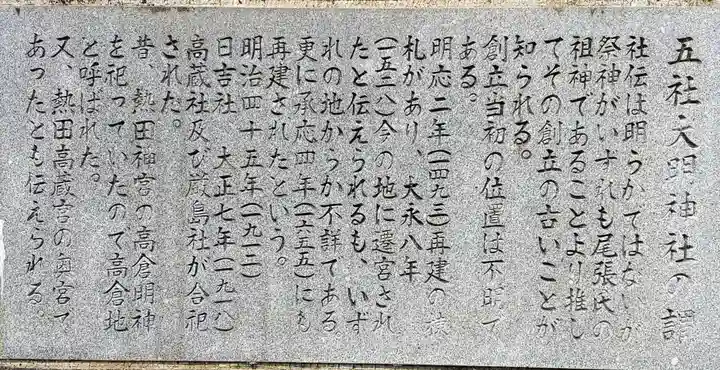 五社大明神社の譯
社伝は明らかではないが
祭神がいずれも尾張氏の
祖神であることより推し
てその創立の古いことが
知られる。
創立当初の位置は不明で
ある。
明応二年(一四九三)再建の棟
札があり、大永八年
(一五二八)今の地に遷宮され
たと伝えられるも、いず
れの地からか不詳である
更に承応四年(一六五五)にも
再建されたという。
明治四十五年(一九一二)
日吉社 大正七年(一九一八)
高蔵社及び厳島社が合祀
された。
昔、熱田神宮の高倉明神
を祀っていたので高倉地
と呼ばれた。
又、熱田高蔵宮の奥宮で
あったとも伝えられる。